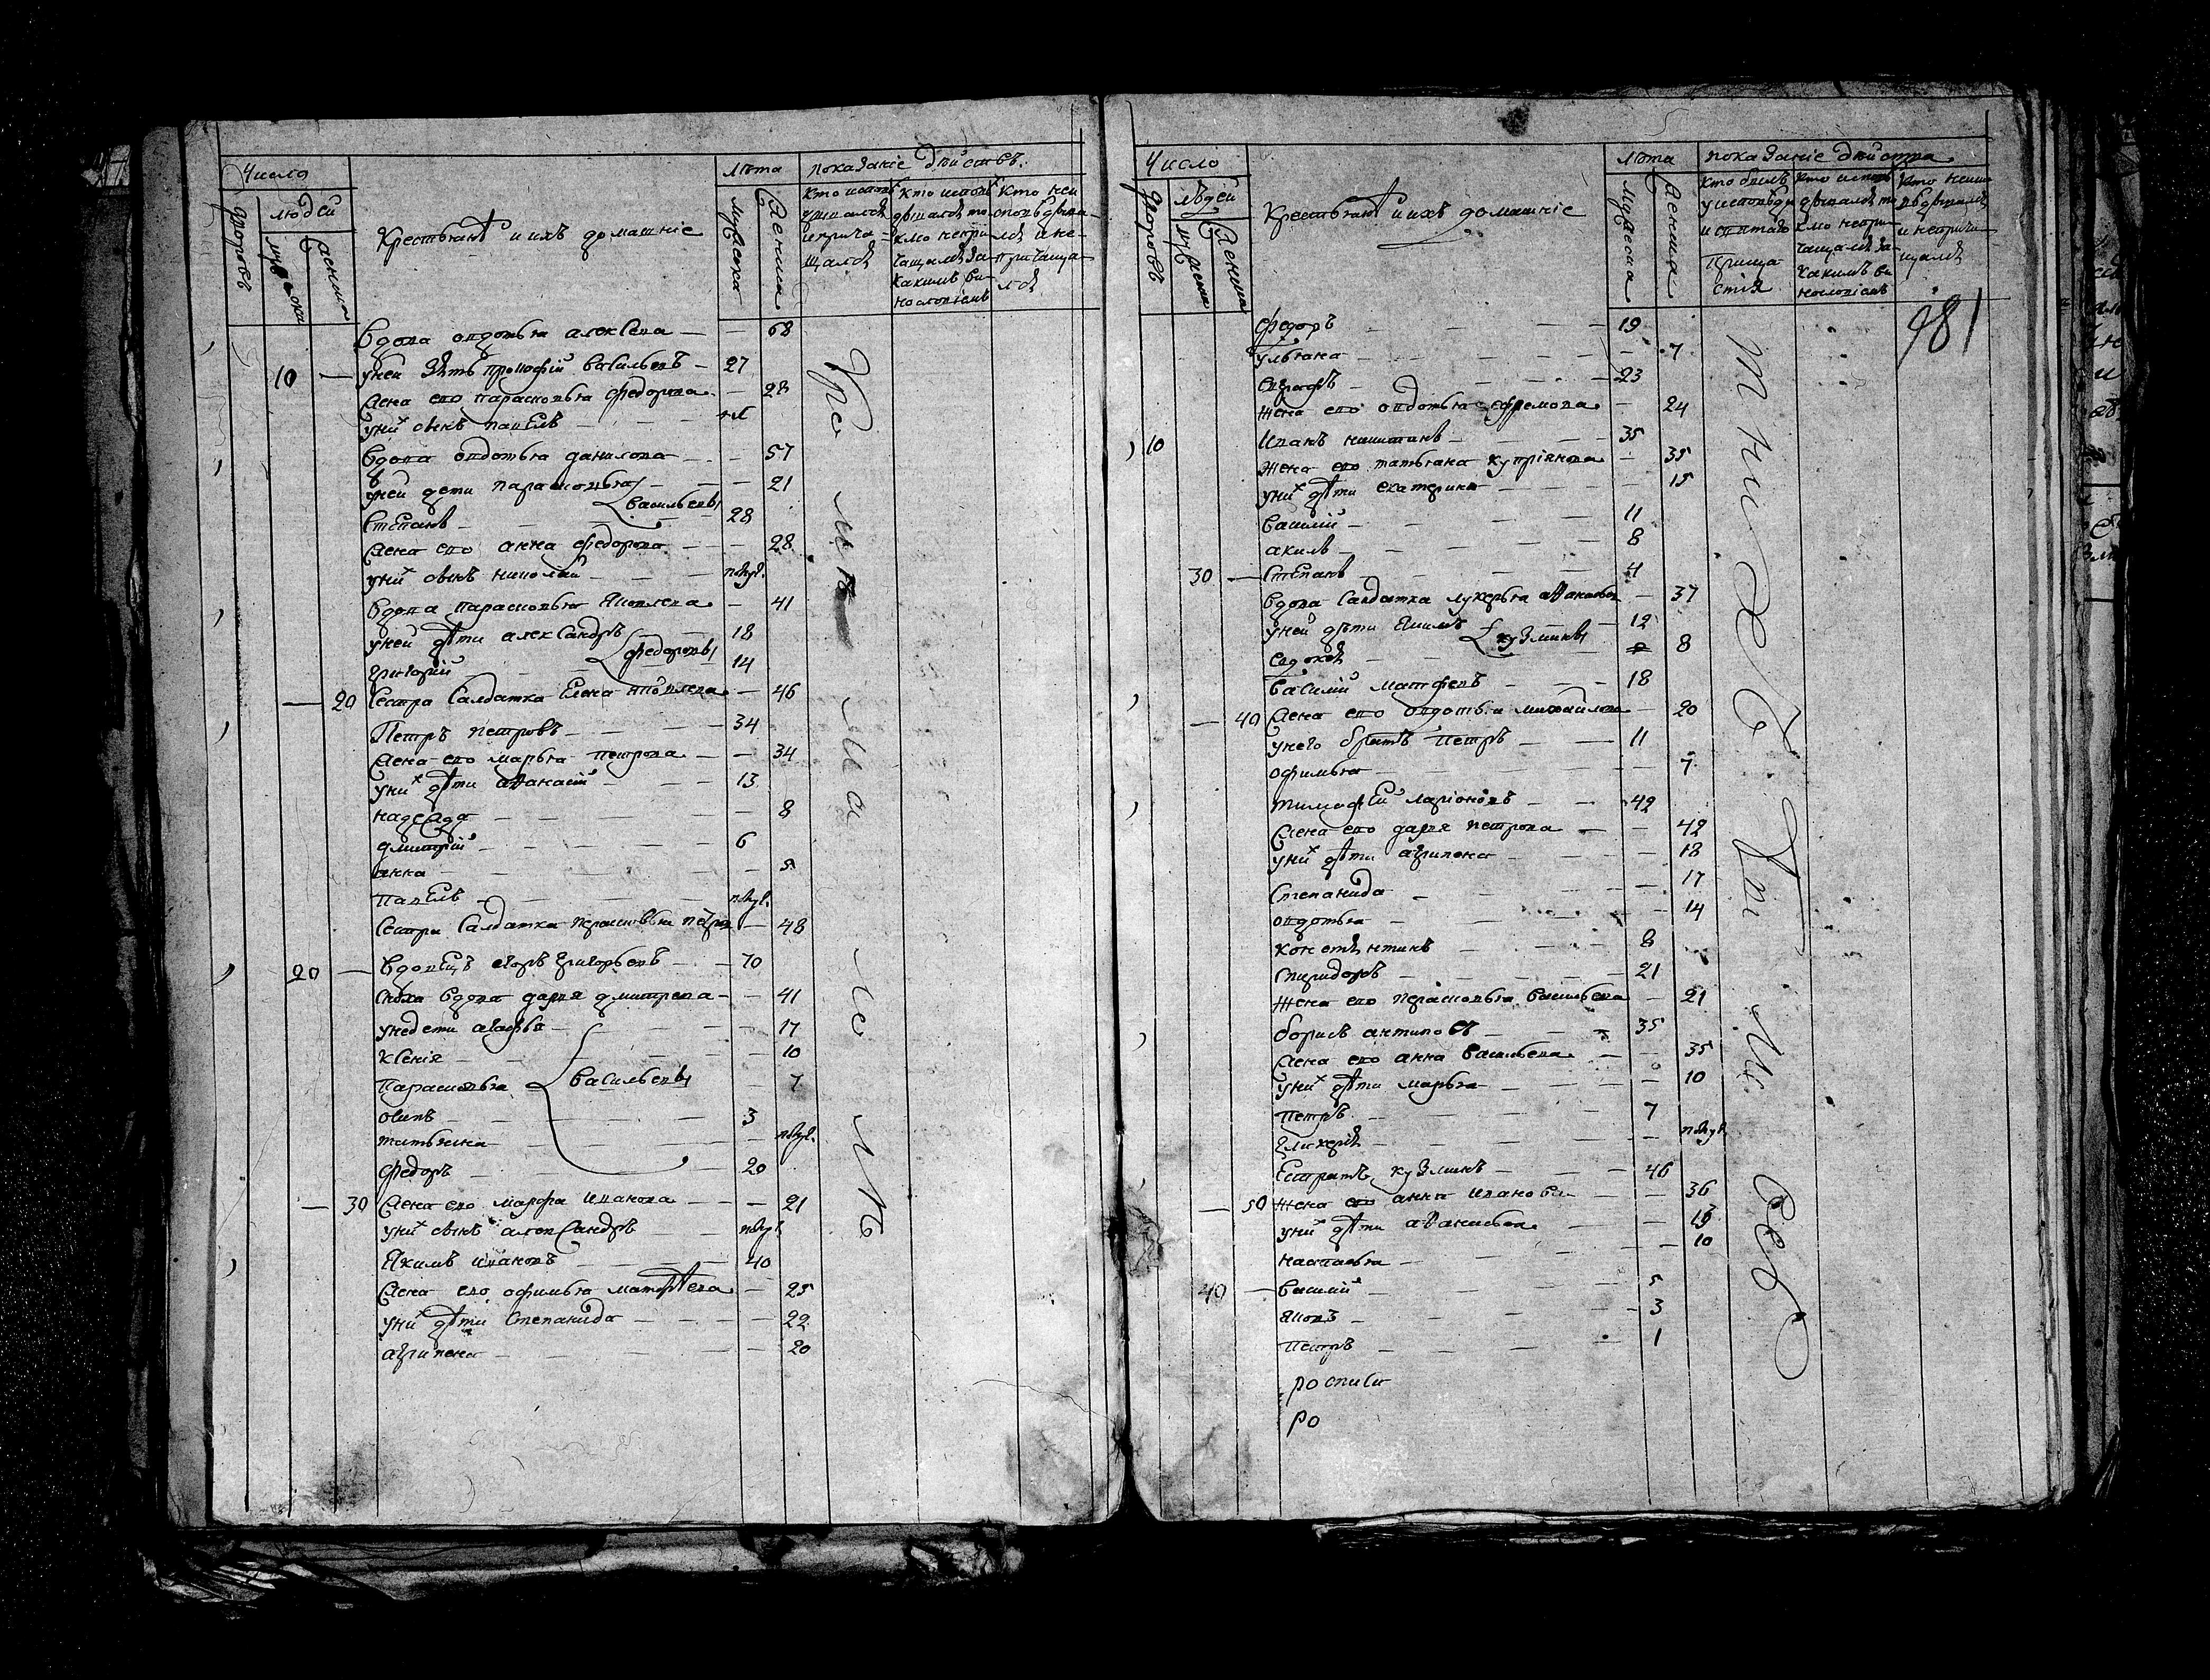 Число
людей
дворовъ
мужеска
женска
Крестьянѣ и ихъ домашніе
Лѣта
мужеска
женска
показаніе дѣйствъ
Кто исповѣдывался и причащался
Кто исповѣдывался токмо непричащался за какимъ винословіемъ
Кто неисповѣдывался и непричащался
Вдова овдотья алексѣева — — 68
10 — у ней зять прокофій васильевъ — 27
жена ево парасковья федорова — 28
у них сынъ павелъ — — —
Вдова овдотья данилова — — 57
у ней дети парасковья — — — 21
васильевы
Степанъ — — — 28
жена ево анна федорова — — 28
у них сынъ николай — — — полгд.
Вдова парасковья Яковлева — 41
у ней дѣти александръ — 18
федоровы
григорій — — 14
— 20 Сестра салдатка Елена яковлева — 46
Петръ петровъ — — — 34
жена ево марья петрова — — 34
у них дѣти аѳанасій — — 13
надежда — — — 8
дмитрій — — — 6
анна — — — 5
павелъ — — — полгд.
Сестра салдатка парасковья петро — 48
20 — Вдовецъ егоръ григорьевъ — — 70
сноха вдова дарья дмитрева — — 41
у не дети агафья — — 17
ксенія — — — 10
парасковья васильевы — 7
осипъ — — — 3
татьяна — — — полгд.
федоръ — — — 20
— 30 жена ево марфа иванова — — — 21
у них сынъ александръ — — полгд
Якимъ ивановъ — — — 40
жена ево офимья матфѣева — — 25
у них дѣти степанида — — — 22
агрипена — — — 20
Число
людей
дворовъ
женска
Крестьянѣ и ихъ домашніе
Лѣта
мужеска
женска
показаніе дѣйства
Кто былъ у исповѣди и святаго причастія
Кто исповѣдывался токмо непричащался за какимъ винословіемъ
Кто неисповѣдывался и непричащался
981
федоръ — — — 19
ульяна — — — 7
— — — 23
жена ево овдотья ефремова — 24
10 Иванъ никитинъ — — — 35
жена ево татьяна купріянова — 35
у них дѣти екатерина — — — 15
василій — — — 11
акимъ — — — 8
30 — степанъ — — — 4
Вдова салдатка лукерья аѳанасьев — 37
у ней дѣти Якимъ — — 12
кузмины
евдокѣя — — 8
василій матфеевъ — — — 18
— 40 жена ево овдотья михаилова — 20
у него братъ петръ — — 11
офимья — — — 7
тимофей ларіоновъ — — 42
жена ево дарья петрова — — 42
у них дѣти агрипена — — — 18
степанида — — 17
овдотья — — — 14
констянтинъ — — — 8
спиридонъ — — — 21
жена ево парасковья васильева — 21
борисъ антиповъ — — — 35
жена ево анна васильева — — 35
у них дѣти марья — — — 10
петръ — — — 7
гликерія — — — полгд
Естратъ кузминъ — — — 46
— 50 жена ево анна иванова — — 36
у них дѣти — — 13
настасья — — — 10
40 — василій — — — 5
яковъ — — — 3
петръ — — — 1
росписи
ро